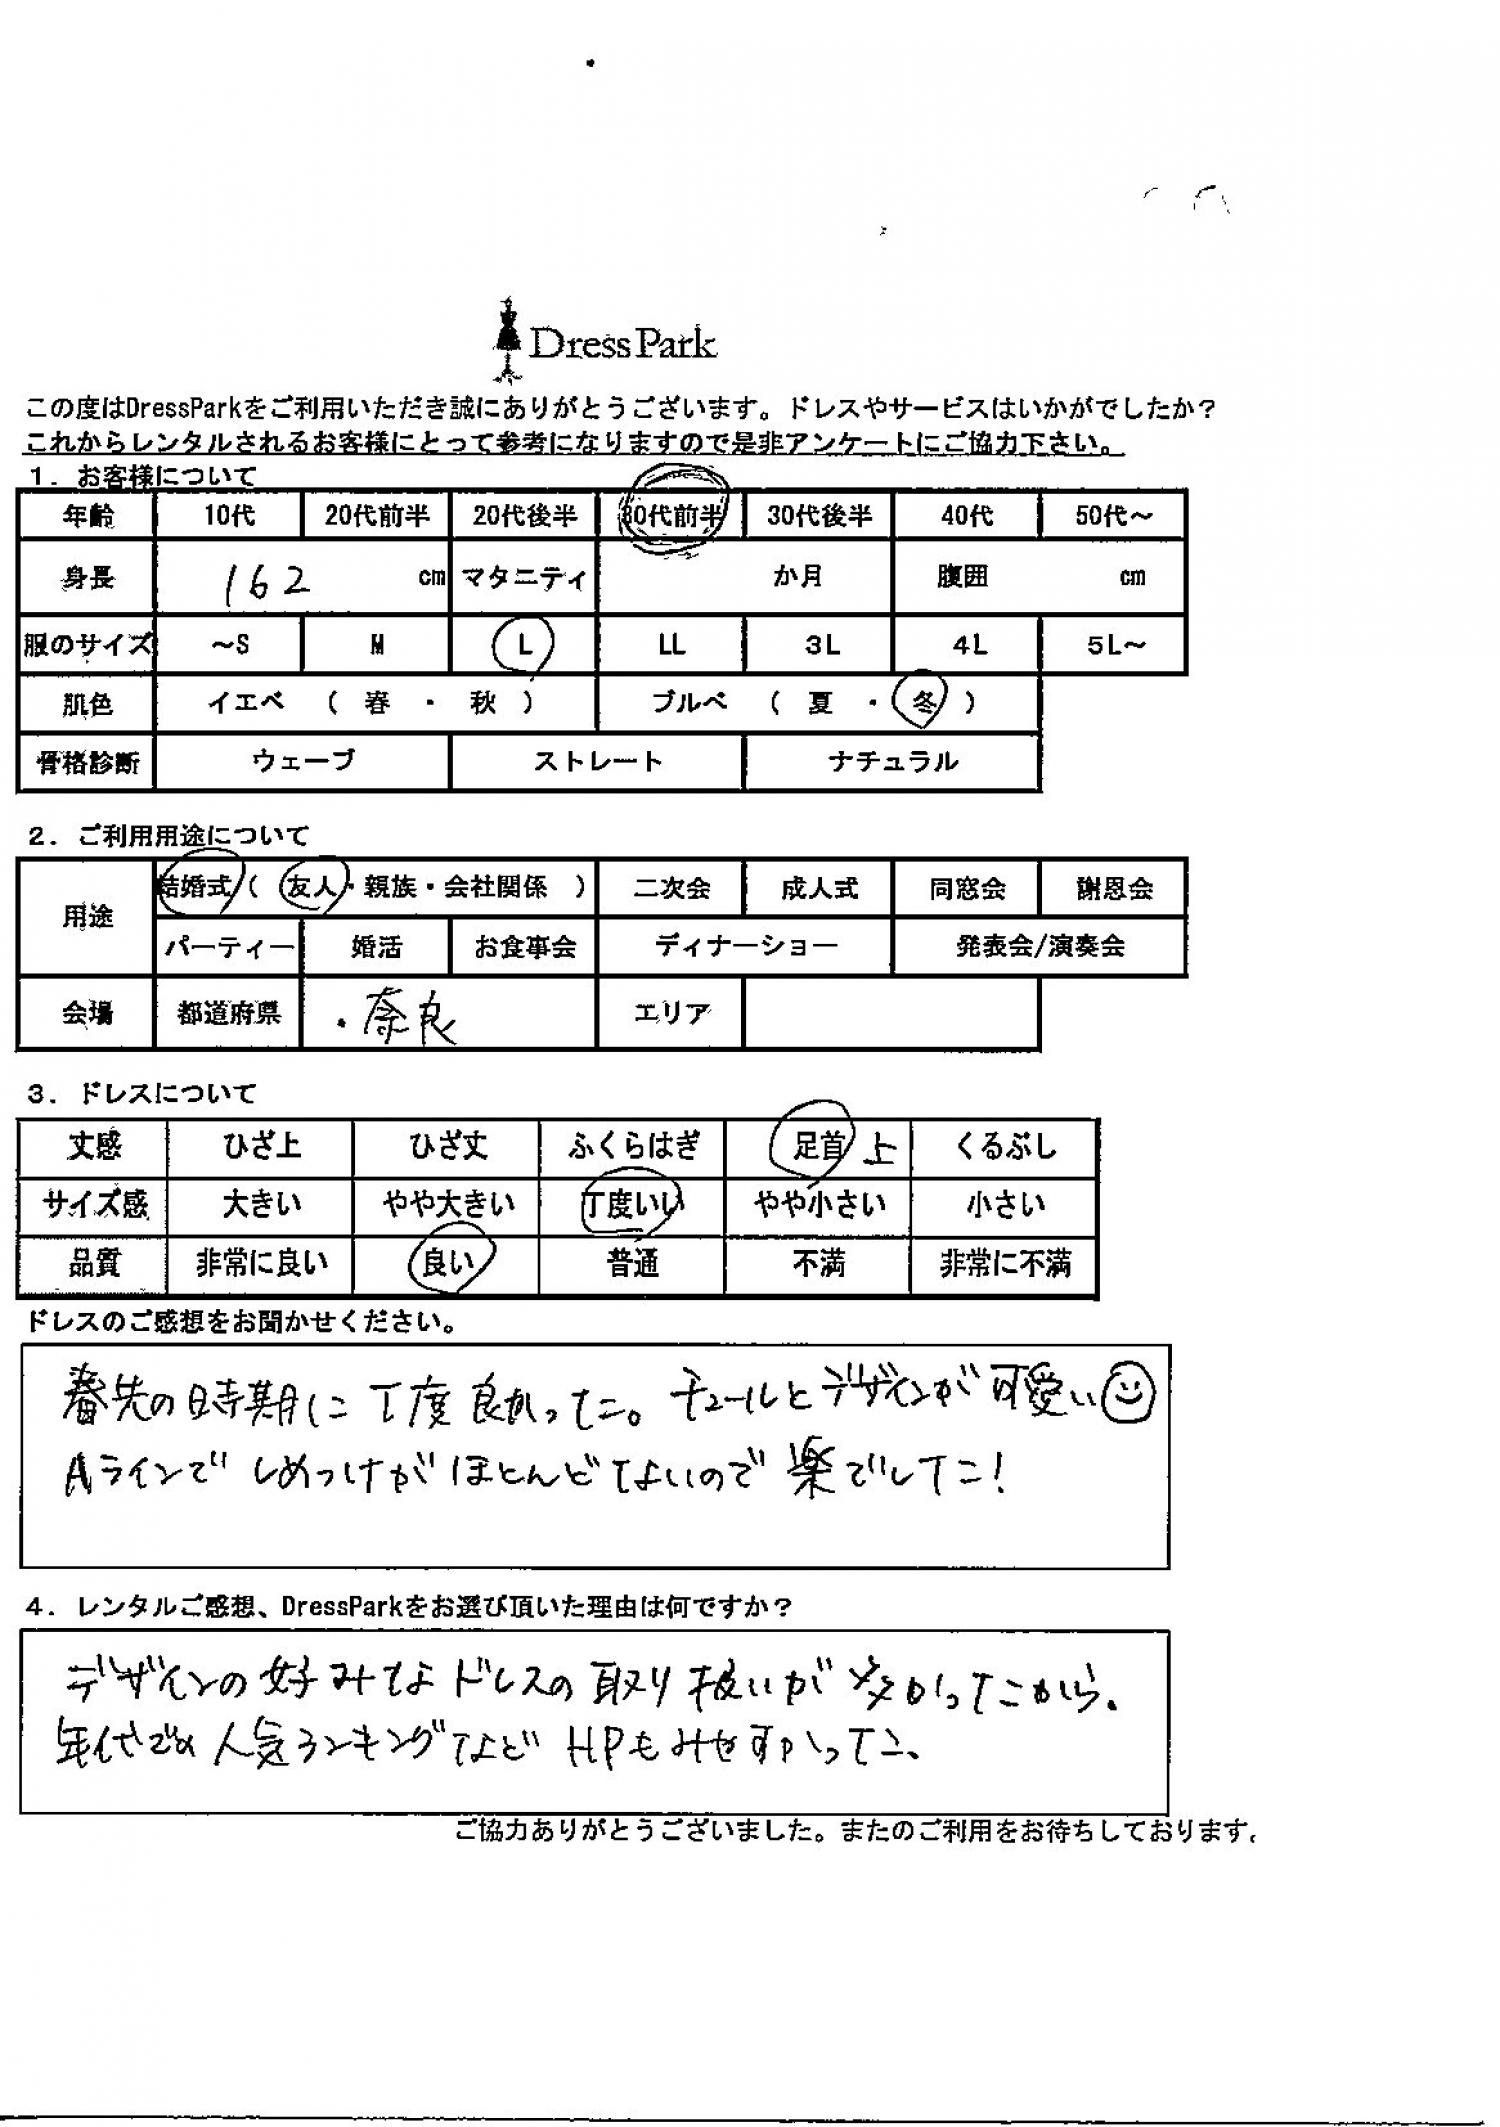 DressPark
この度はDressParkをご利用いただき誠にありがとうございます。ドレスやサービスはいかがでしたか？
これからレンタルされるお客様にとって参考になりますので是非アンケートにご協力下さい。
１．お客様について
年齢 10代 20代前半 20代後半 30代前半 30代後半 40代 50代～
身長 162 cm マタニティ か月 腹囲 cm
服のサイズ ～S M L LL 3L 4L 5L～
肌色 イエベ （ 春 ・ 秋 ） ブルベ （ 夏 ・ 冬 ）
骨格診断 ウェーブ ストレート ナチュラル
２．ご利用用途について
用途 結婚式（ 友人・親族・会社関係 ） 二次会 成人式 同窓会 謝恩会
パーティー 婚活 お食事会 ディナーショー 発表会/演奏会
会場 都道府県 奈良 エリア
３．ドレスについて
丈感 ひざ上 ひざ丈 ふくらはぎ 足首 上 くるぶし
サイズ感 大きい やや大きい 丁度いい やや小さい 小さい
品質 非常に良い 良い 普通 不満 非常に不満
ドレスのご感想をお聞かせください。
春先の時期に丁度良かった。チュールとデザインが可愛い☺
Aラインでしめつけがほとんどないので楽でした！
４．レンタルご感想、DressParkをお選び頂いた理由は何ですか？
デザインの好みなドレスの取り扱いが多かったから。
年代での人気ランキングなどHPもみやすかった。
ご協力ありがとうございました。またのご利用をお待ちしております。